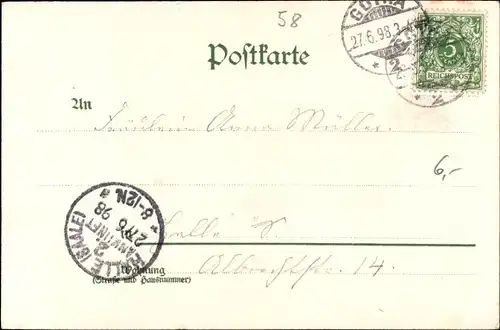 58
GOTHA
27.6.98.3-4
* 2 *
5
REICHSPOST
Postkarte
An
Fräulein Anna Müller.
6,-
HALLE (SAALE)
ANKUNFT
27/6
98
8-12N.
Halle S.
Albrechtstr. 14.
Wohnung
(Straße und Hausnummer)